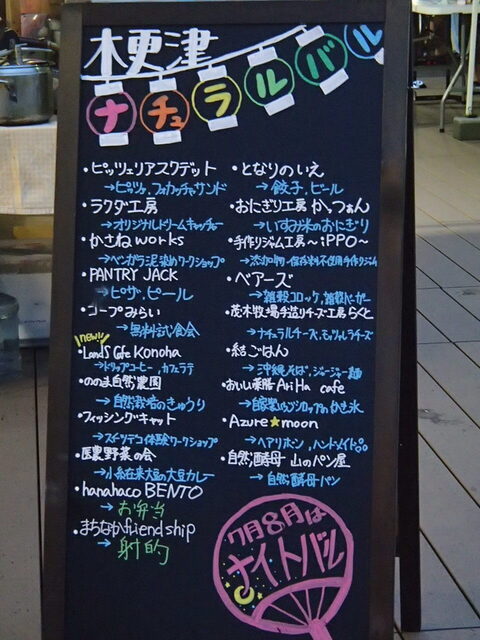 木更津
ナチュラルバル
・ピッツェリアスクデット
→ピッツァ、フォカッチャサンド
・ラクダ工房
→オリジナルドリームキャッチャー
・かさねworks
→ベンガラ泥染めワークショップ
・PANTRY JACK
→ピザ、ビール
・コープみらい
→無料試食会
new!!
・Land'S Cafe Konoha
→ドリップコーヒー、カフェラテ
・ののま自然農園
→自然栽培のきゅうり
・フィッシングキャット
→スイーツデコ体験ワークショップ
・医農野菜の会
→小糸在来大豆の大豆カレー
・hanahaco BENTO
→お弁当
・まちなかfriend ship
→射的
・となりのいえ
→餃子、ビール
・おにぎり工房かっつぁん
→いすみ米のおにぎり
・手作りジャム工房～iPPO～
→添加物・保存料不使用手作りジャム
・ベアーズ
→雑穀コロッケ、雑穀バーガー
・茂木牧場手造りチーズ工房らくと
→ナチュラルチーズ、モッツァレラチーズ
・結ごはん
→沖縄そば、ジャージャー麺
・おいしい薬膳 Ari Ha cafe
→自家製シロップのかき氷
・Azure★moon
→ヘアリボン、ハンドメイド
・自然酵母 山のパン屋
→自然酵母パン
7月8月は
ナイトバル